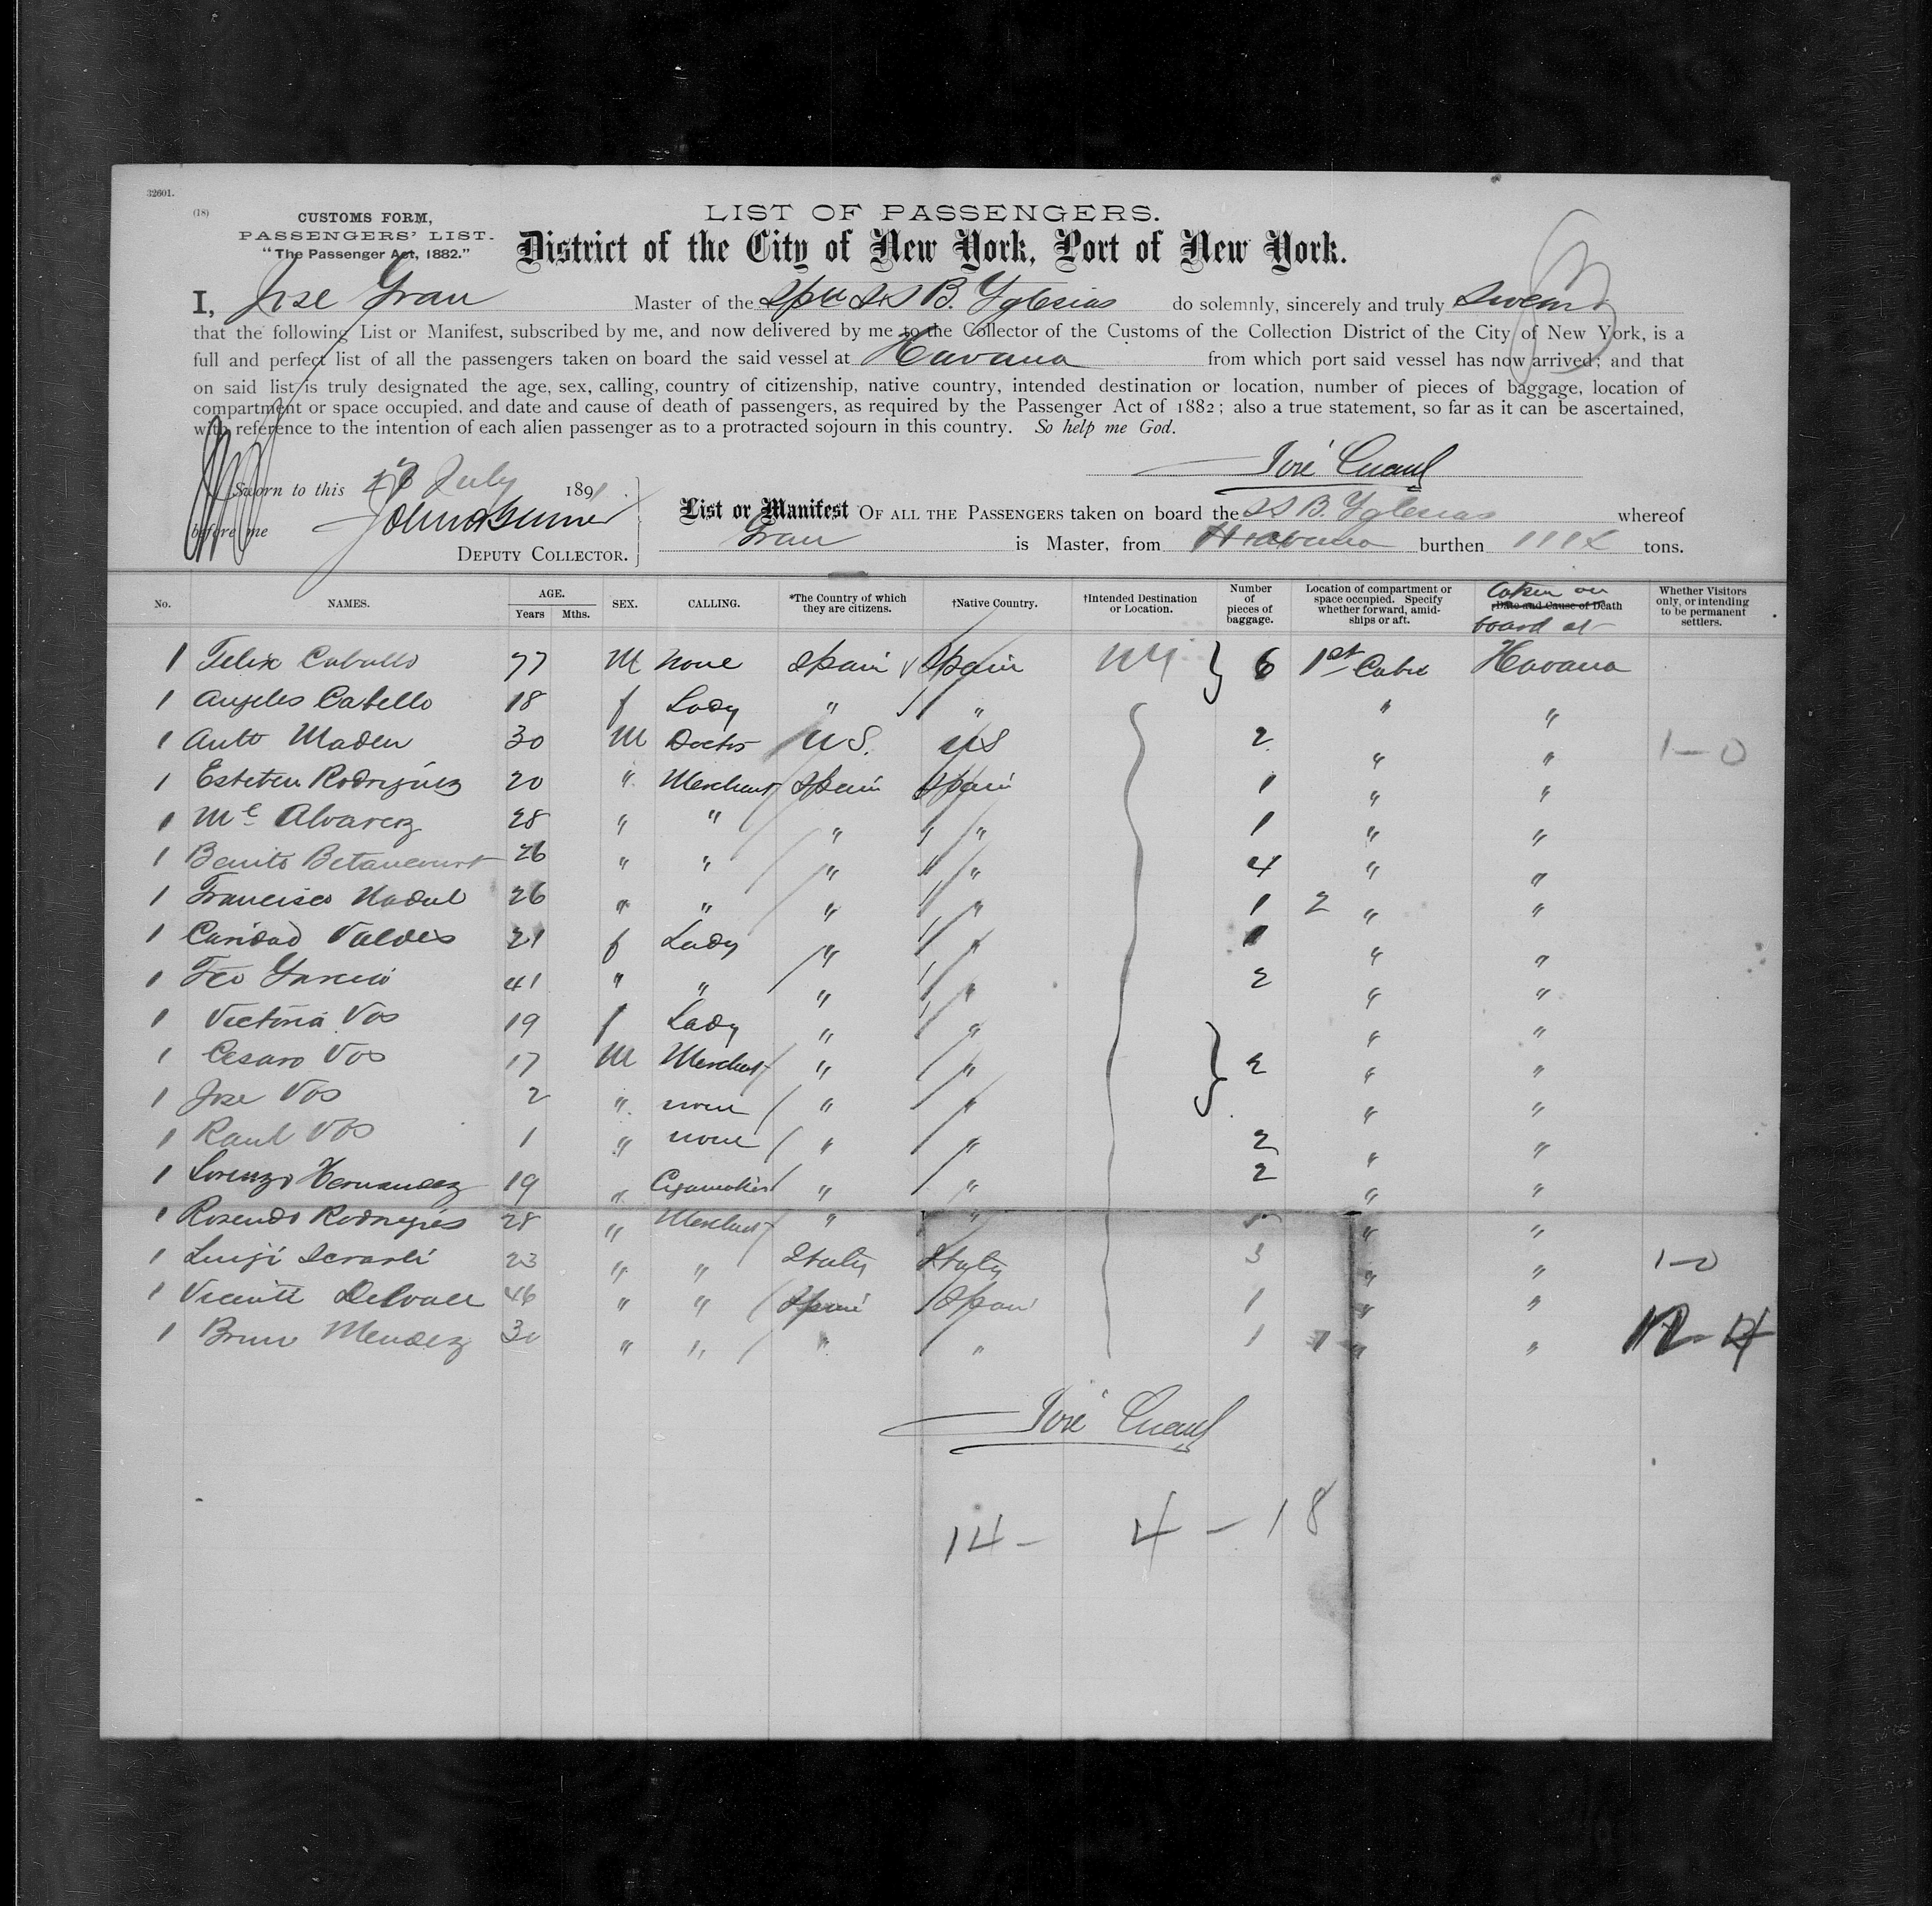 32601.
(18)
CUSTOMS FORM,
PASSENGERS' LIST.
"The Passenger Act, 1882."
LIST OF PASSENGERS.
District of the City of New York, Port of New York.
I, Jose Grau Master of the Spn SS B. Yglesias do solemnly, sincerely and truly swear
that the following List or Manifest, subscribed by me, and now delivered by me to the Collector of the Customs of the Collection District of the City of New York, is a
full and perfect list of all the passengers taken on board the said vessel at Havana from which port said vessel has now arrived; and that
on said list is truly designated the age, sex, calling, country of citizenship, native country, intended destination or location, number of pieces of baggage, location of
compartment or space occupied, and date and cause of death of passengers, as required by the Passenger Act of 1882; also a true statement, so far as it can be ascertained,
with reference to the intention of each alien passenger as to a protracted sojourn in this country. So help me God.
José
Sworn to this July 1891
before me
DEPUTY COLLECTOR.
List or Manifest OF ALL THE PASSENGERS taken on board the SS B. Yglesias whereof
Grau is Master, from Havana burthen tons.
No. NAMES. AGE. Years Mths. SEX. CALLING. *The Country of which they are citizens. †Native Country. †Intended Destination or Location. Number of pieces of baggage. Location of compartment or space occupied. Specify whether forward, amidships or aft. Date and Cause of Death Taken on board at Whether Visitors only, or intending to be permanent settlers.
1 Felix Cabello 77 M none Spain Spain NY 6 1st Cabn Havana
1 Angeles Cabello 18 f Lady " " " "
1 Anto Maden 30 M Doctor U S. US 2 " " 1-0
1 Esteben Rodriguez 20 " Merchant Spain Spain 1 " "
1 Ml Alvarez 28 " " " " 1 " "
1 Benito Betancourt 26 " " " " 4 " "
1 Francisco Nadal 26 " " " " 1 2 " "
1 Caridad Valdes 21 f Lady " " 1 " "
1 Fco Garcia 41 " " " " 2 " "
1 Victoria Vos 19 f Lady " " " "
1 Cesaro Vos 17 M Merchant " " 2 " "
1 Jose Vos 2 " none " " " "
1 Raul Vos 1 " none " " 2 " "
1 Lorenzo Hernandez 19 " Cigarmaker " " 2 " "
1 Rosendo Rodrigues 28 " Merchant " " " "
1 Luigi 23 " " Italy Italy 3 " " 1-0
1 Vicente Delvalle 46 " " Spain Spain 1 " "
1 Bruno Mendez 30 " " " " 1 7 " " 12-4
José
14 - 4 - 18